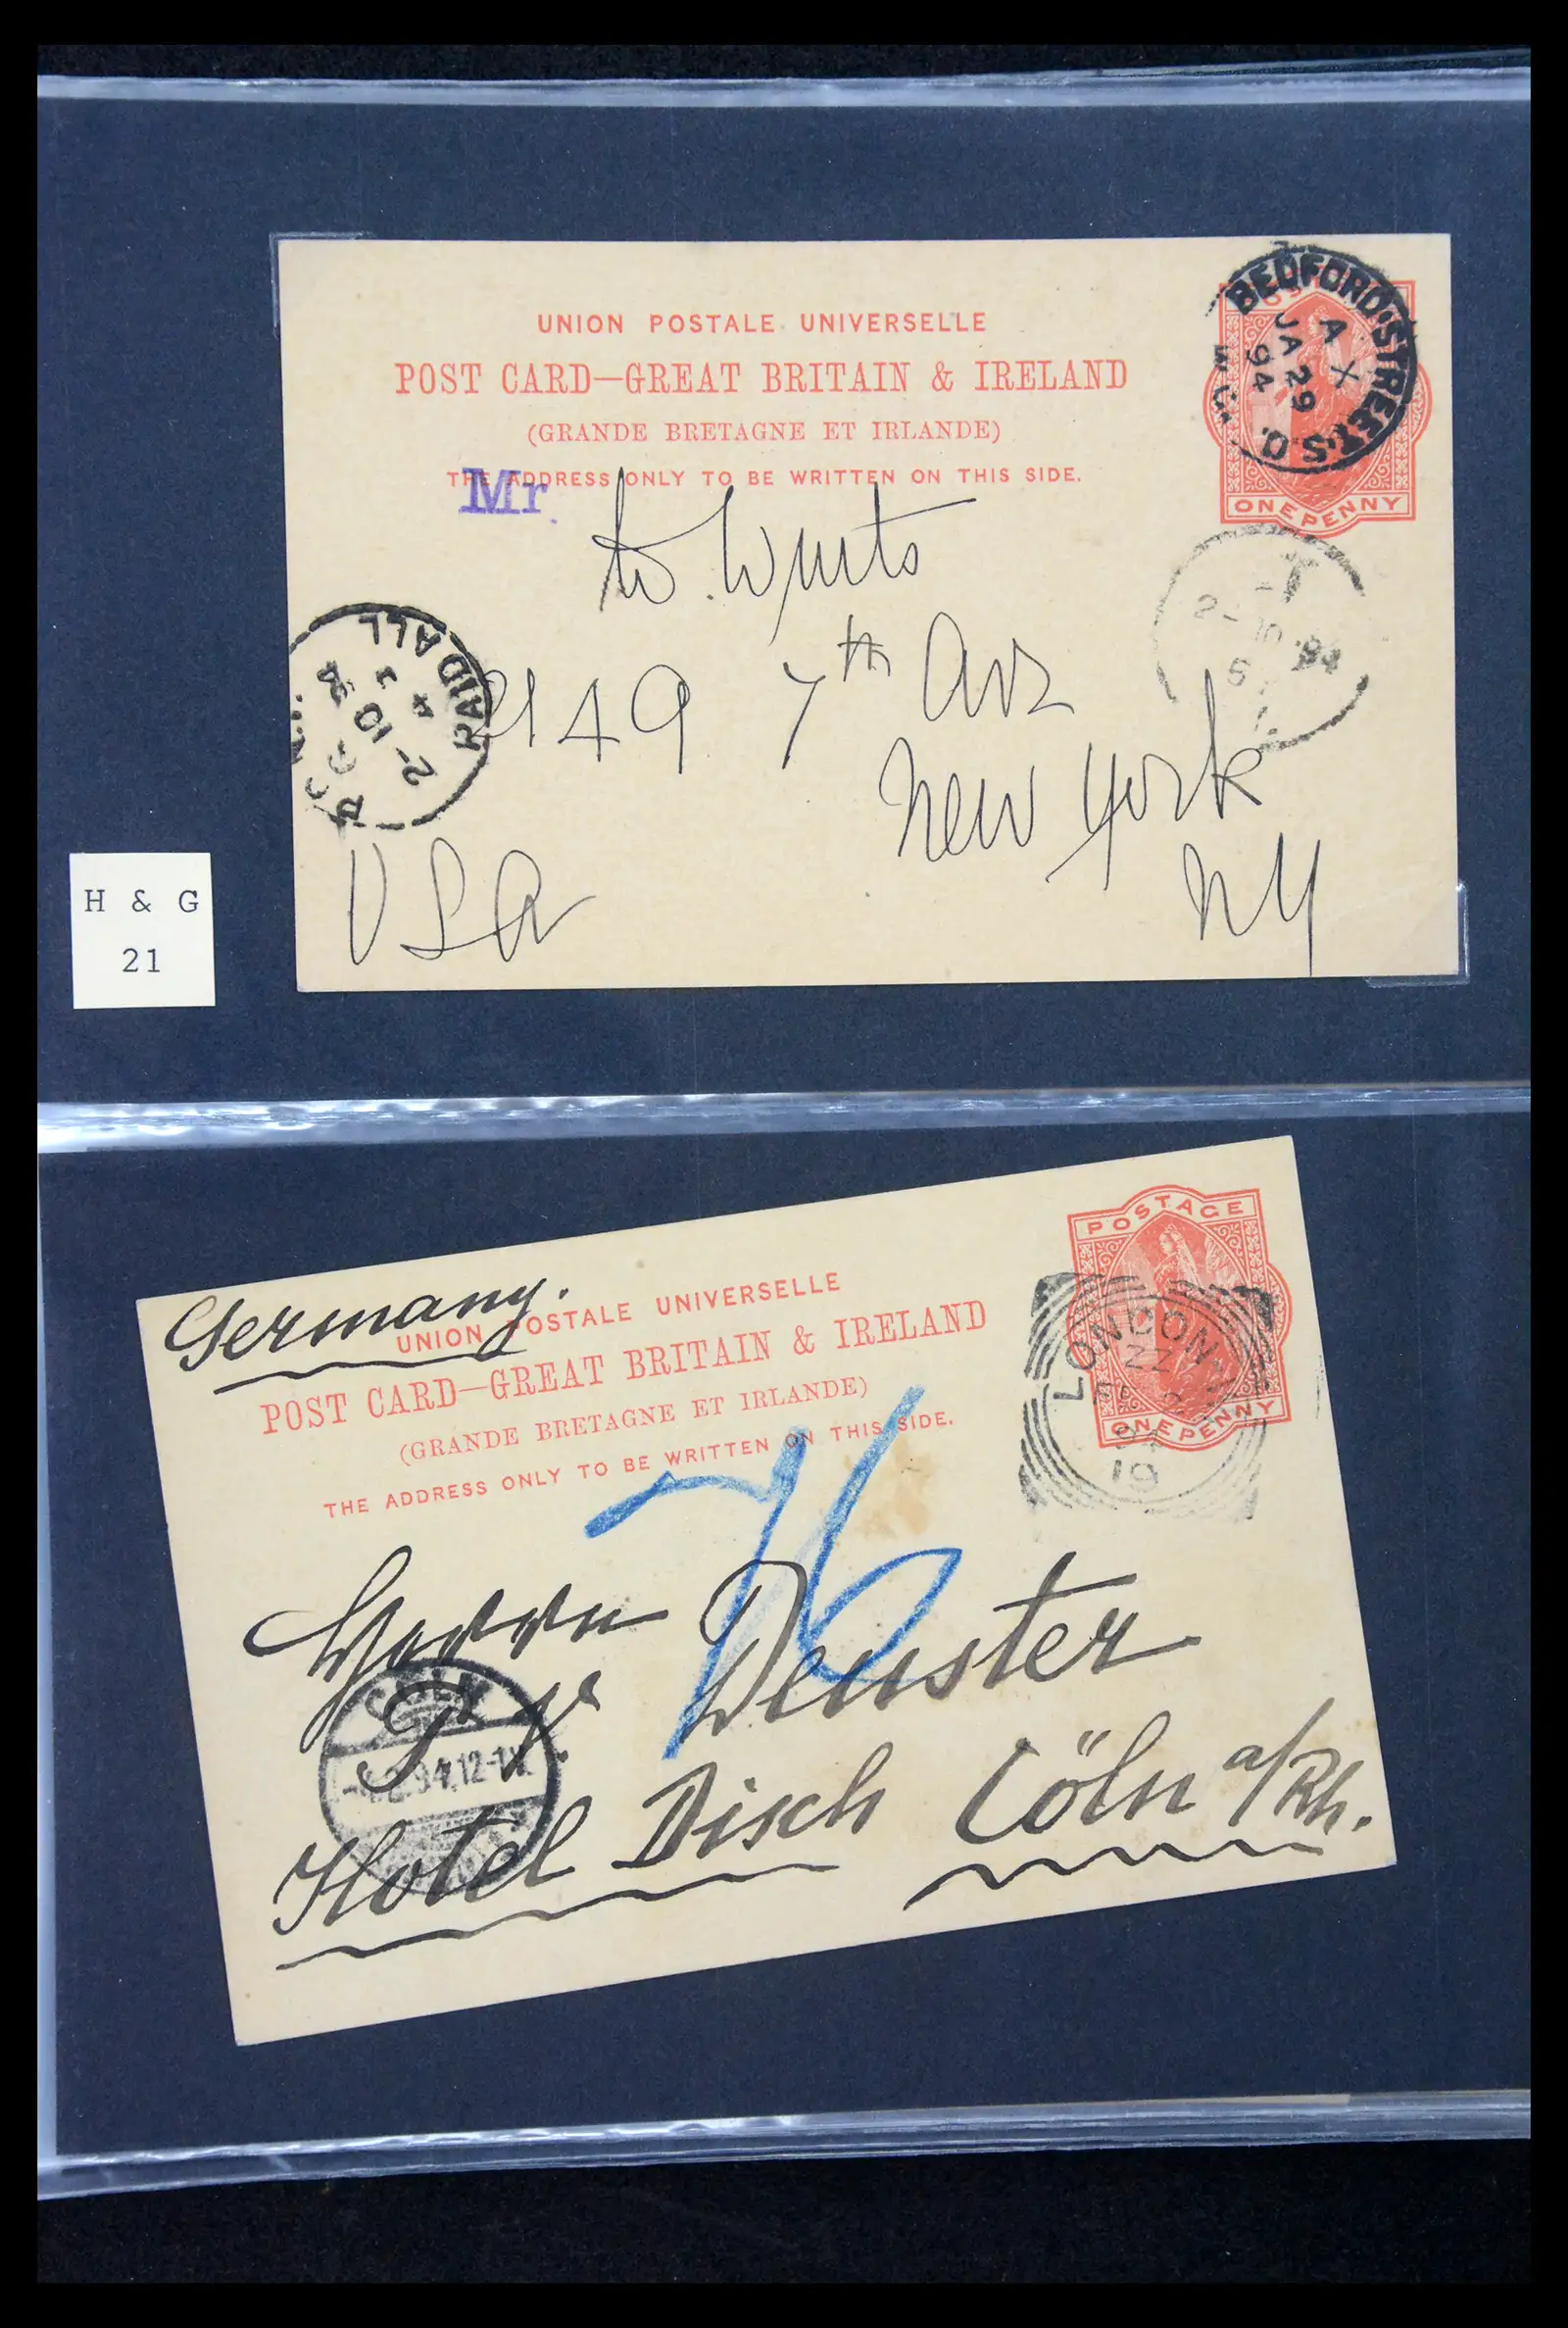 UNION POSTALE UNIVERSELLE
POST CARD—GREAT BRITAIN & IRELAND
(GRANDE BRETAGNE ET IRLANDE)
THE ADDRESS ONLY TO BE WRITTEN ON THIS SIDE.
BEDFORD·STREET·S.O.
W.C.
A X
JA 29
94
ONE PENNY
Mr.
W. Wurts
2149 7th Ave
New York
NY
USA
PAID ALL
2-10
94
2-10
94
H & G
21
Germany.
UNION POSTALE UNIVERSELLE
POST CARD—GREAT BRITAIN & IRELAND
(GRANDE BRETAGNE ET IRLANDE)
THE ADDRESS ONLY TO BE WRITTEN ON THIS SIDE.
POSTAGE
ONE PENNY
LONDON
ZZ
FE 2
94
19
76
Herrn
P. V. Deuster
Hotel Disch Cöln a/Rh.
CÖLN
2.94.12-1